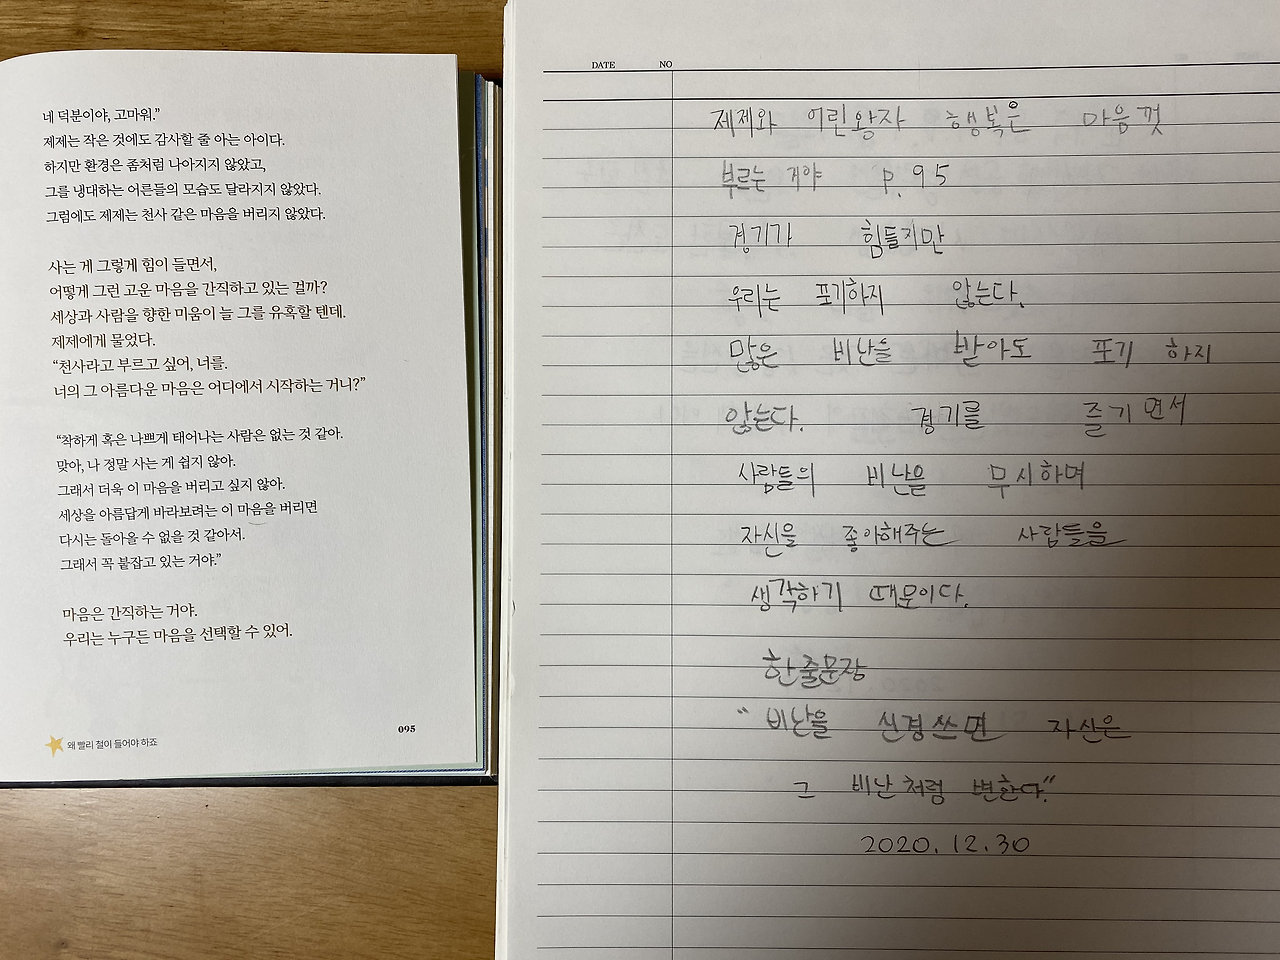 네 덕분이야, 고마워.”
제제는 작은 것에도 감사할 줄 아는 아이다.
하지만 환경은 좀처럼 나아지지 않았고,
그를 냉대하는 어른들의 모습도 달라지지 않았다.
그럼에도 제제는 천사 같은 마음을 버리지 않았다.
사는 게 그렇게 힘이 들면서,
어떻게 그런 고운 마음을 간직하고 있는 걸까?
세상과 사람을 향한 미움이 늘 그를 유혹할 텐데.
제제에게 물었다.
“천사라고 부르고 싶어, 너를.
너의 그 아름다운 마음은 어디에서 시작하는 거니?”
“착하게 혹은 나쁘게 태어나는 사람은 없는 것 같아.
맞아, 나 정말 사는 게 쉽지 않아.
그래서 더욱 이 마음을 버리고 싶지 않아.
세상을 아름답게 바라보려는 이 마음을 버리면
다시는 돌아올 수 없을 것 같아서.
그래서 꼭 붙잡고 있는 거야.”
마음은 간직하는 거야.
우리는 누구든 마음을 선택할 수 있어.
095
왜 빨리 철이 들어야 하죠
DATE NO
제제와 어린왕자 행복은 마음껏
부르는 거야 p.95
경기가 힘들지만
우리는 포기하지 않는다.
많은 비난을 받아도 포기 하지
않는다. 경기를 즐기면서
사람들의 비난을 무시하며
자신을 좋아해주는 사람들을
생각하기 때문이다.
한줄문장
“비난을 신경쓰면 자신은
그 비난처럼 변한다.”
2020.12.30